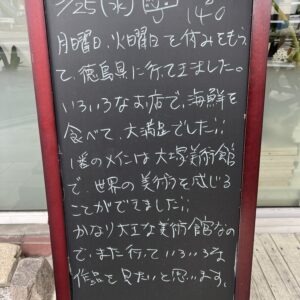 /25(水)
月曜日、火曜日を休みをもらっ
て、徳島県に行って来ました。
いろいろなお店で、海鮮を
食べて、大満足でした!!
1番のメインは大塚美術館
で、世界の美術を感じる
ことができました!!
かなり大きな美術館なの
で、また行っていろいろな
作品を見たいと思います。